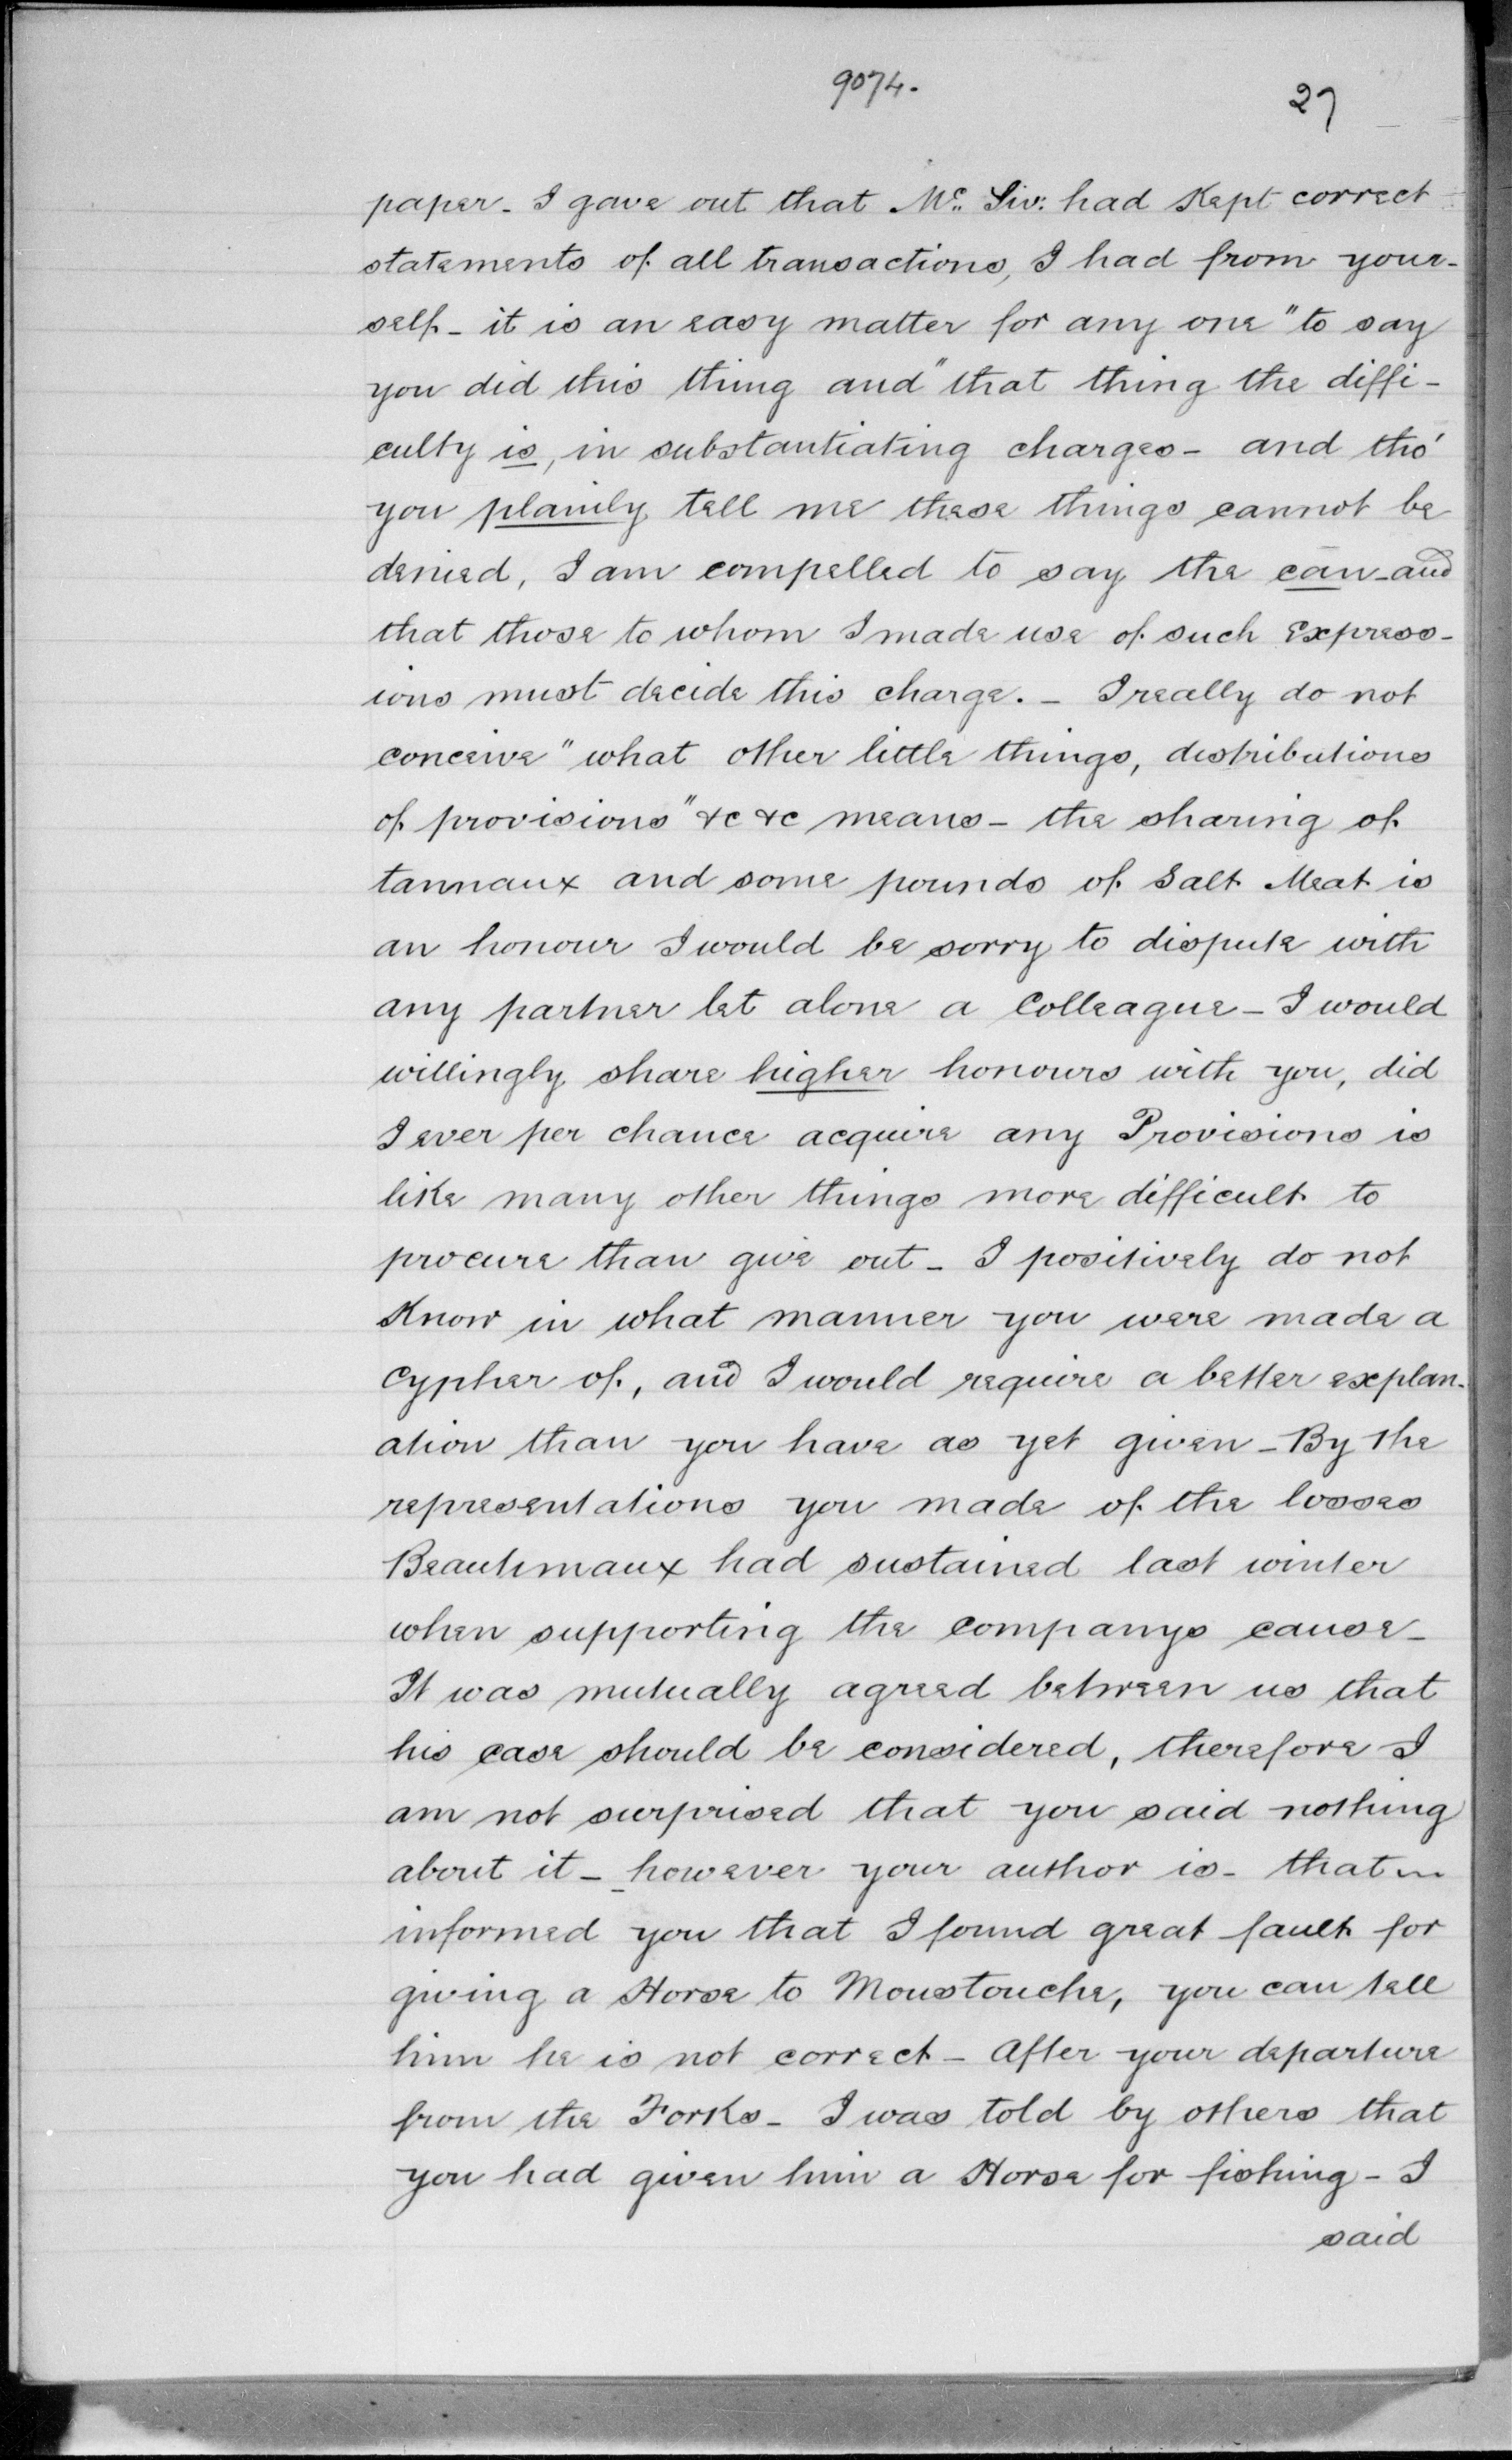 9074.
27
paper_ I gave out that Mc. Liv: had Kept correct
statements of all transactions, I had from your-
self_ it is an easy matter for any one "to say
you did this thing and" that thing the diffi-
culty is, in substantiating charges_ and tho'
you plainly tell me these things cannot be
denied, I am compelled to say the can_and
that those to whom I made use of such Express-
ions must decide this charge._ I really do not
conceive "what other little things, distributions
of provisions" &c &c means_ the sharing of
tannaux and some pounds of Salt Meat is
an honour I would be sorry to dispute with
any partner let alone a Colleague_ I would
willingly share higher honours with you, did
I ever per chance acquire any Provisions is
like many other things more difficult to
procure than give out_ I positively do not
Know in what manner you were made a
Cypher of, and I would require a better explan-
ation than you have as yet given_By the
representations you made of the losses
Beauhmaux had sustained last winter
when supporting the companys cause_
It was mutually agreed between us that
his case should be considered, therefore I
am not surprised that you said nothing
about it_ however your author is_ that
informed you that I found great fault for
giving a Horse to Moustouche, you can tell
him he is not correct_ After your departure
from the Forks_ I was told by others that
you had given him a Horse for fishing_ I
said